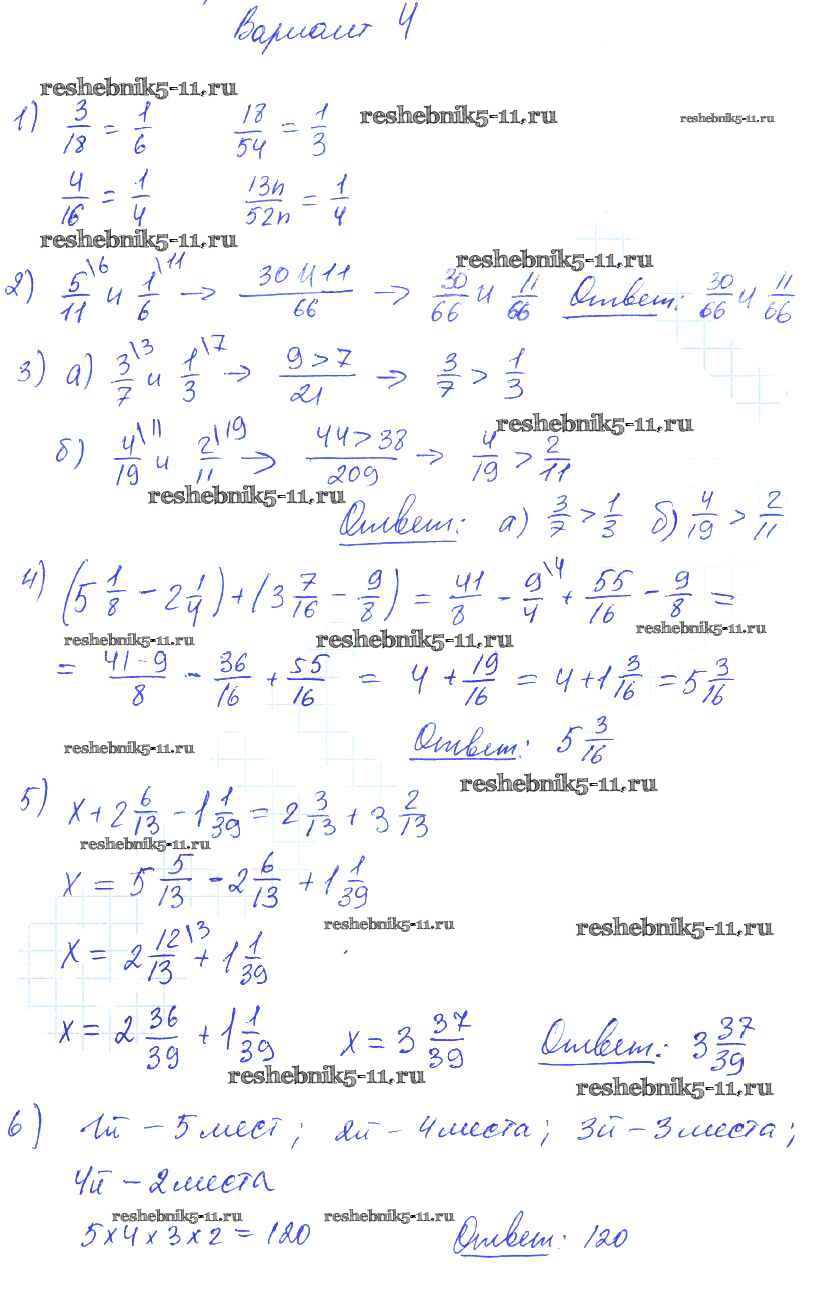 Вариант 4
reshebnik5-11.ru
1) 3/18 = 1/6 18/54 = 1/3 reshebnik5-11.ru reshebnik5-11.ru
4/16 = 1/4 13n/52n = 1/4
reshebnik5-11.ru reshebnik5-11.ru
2) 5/11\6 и 1/6\11 → 30 и 11/66 → 30/66 и 11/66 Ответ: 30/66 и 11/66
3) а) 3/7\3 и 1/3\7 → 9 > 7/21 → 3/7 > 1/3
reshebnik5-11.ru
б) 4/19\11 и 2/11\19 → 44 > 38/209 → 4/19 > 2/11
reshebnik5-11.ru
Ответ: а) 3/7 > 1/3 б) 4/19 > 2/11
4) (5 1/8 - 2 1/4) + (3 7/16 - 9/8) = 41/8 - 9/4\4 + 55/16 - 9/8 =
reshebnik5-11.ru reshebnik5-11.ru reshebnik5-11.ru
= 41-9/8 - 36/16 + 55/16 = 4 + 19/16 = 4 + 1 3/16 = 5 3/16
reshebnik5-11.ru Ответ: 5 3/16
reshebnik5-11.ru
5) x + 2 6/13 - 1 1/39 = 2 3/13 + 3 2/13
reshebnik5-11.ru
x = 5 5/13 - 2 6/13 + 1 1/39
reshebnik5-11.ru reshebnik5-11.ru
x = 2 12/13\3 + 1 1/39
x = 2 36/39 + 1 1/39 x = 3 37/39 Ответ: 3 37/39
reshebnik5-11.ru reshebnik5-11.ru
6) 1й - 5 мест; 2й - 4 места; 3й - 3 места;
4й - 2 места
reshebnik5-11.ru reshebnik5-11.ru
5 x 4 x 3 x 2 = 120 Ответ: 120